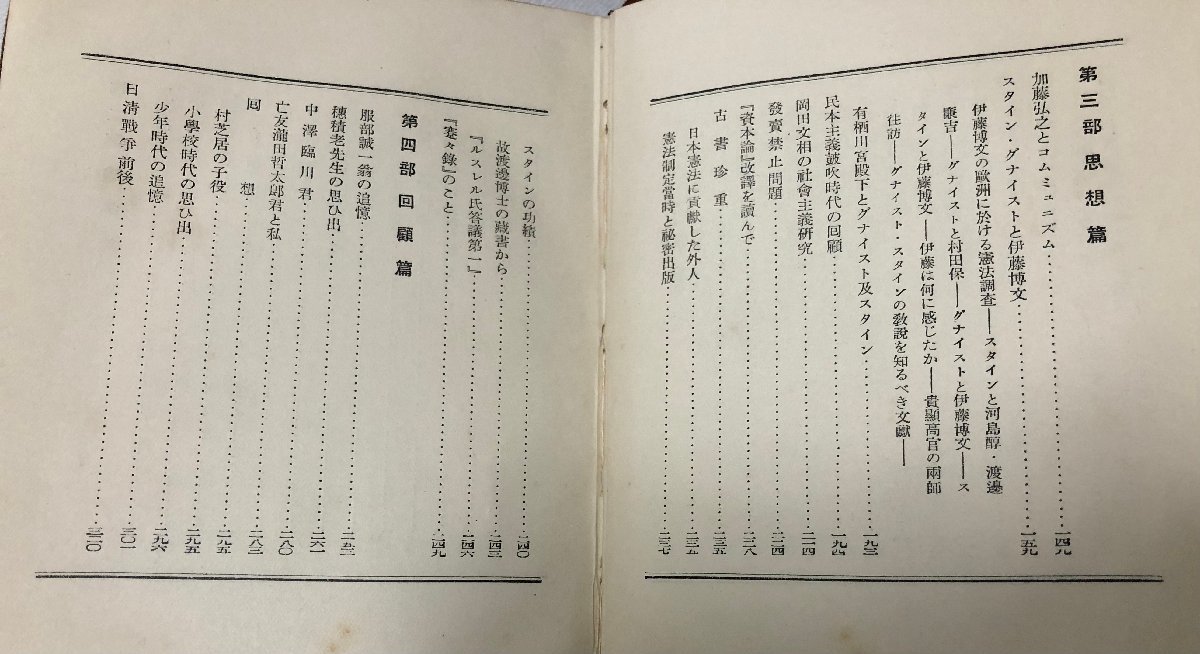 第三部 思想篇
加藤弘之とコムミュニズム……一四九
スタイン・グナイストと伊藤博文……一五九
伊藤博文の歐洲に於ける憲法調査――スタインと河島醇・渡邊
廉吉――グナイストと村田保――グナイストと伊藤博文――ス
タインと伊藤博文――伊藤は何に感じたか――貴顯高官の兩師
往訪――グナイスト・スタインの敎說を知るべき文獻――
有栖川宮殿下とグナイスト及スタイン……一九三
民本主義鼓吹時代の回顧……一九四
岡田文相の社會主義硏究……二一四
發賣禁止問題……二二四
『資本論』改譯を讀んで……二二八
古書珍重……二三五
日本憲法に貢獻した外人……二三五
憲法制定當時と祕密出版……二三七
スタインの功績……二四〇
故渡邊博士の藏書から……二四三
『ルスレル氏答議第一』……二四六
『蹇々錄』のこと……二四九
第四部 回顧篇
服部誠一翁の追憶……二五三
穗積老先生の思ひ出……二六一
中澤臨川君……二八〇
亡友瀧田哲太郎君と私……二八三
回想……二九五
村芝居の子役……二九五
小學校時代の思ひ出……二九六
少年時代の追憶……三〇一
日淸戰爭前後……三二〇